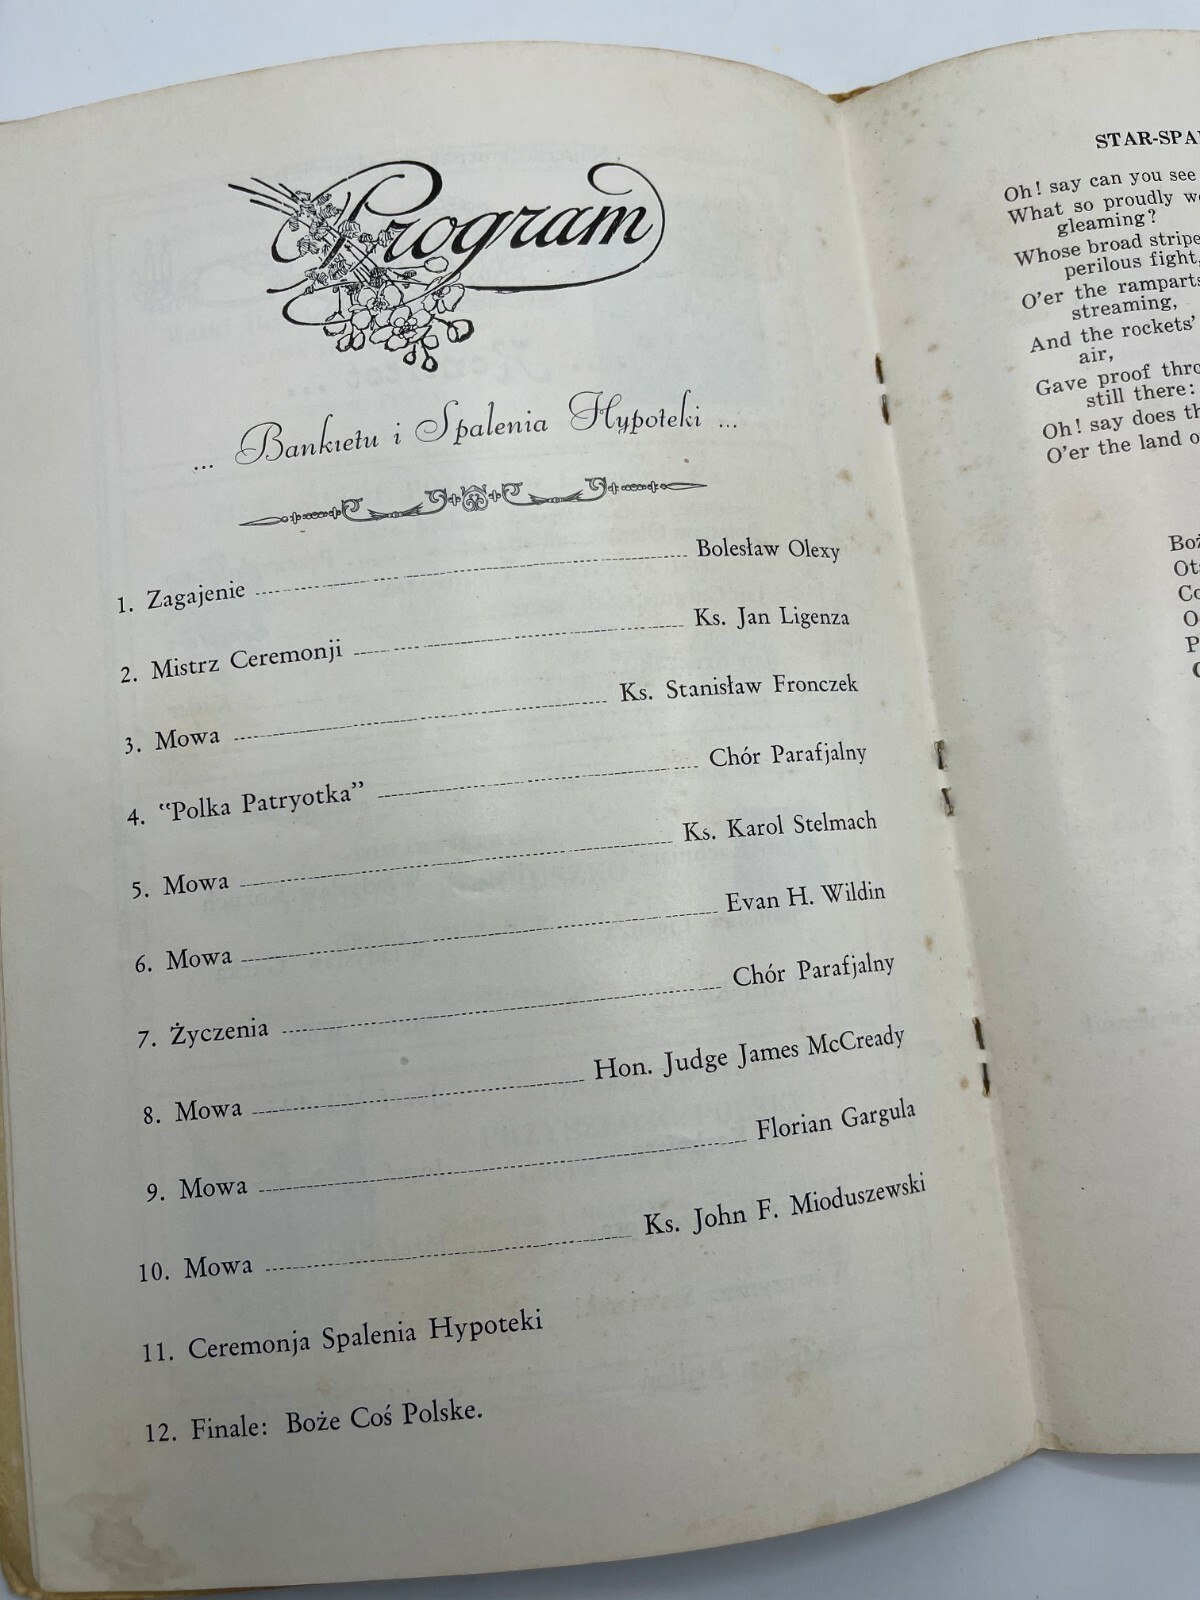 Program
... Bankietu i Spalenia Hypoteki ...
1. Zagajenie Bolesław Olexy
2. Mistrz Ceremonji Ks. Jan Ligenza
3. Mowa Ks. Stanisław Fronczek
4. “Polka Patryotka” Chór Parafjalny
5. Mowa Ks. Karol Stelmach
6. Mowa Evan H. Wildin
7. Życzenia Chór Parafjalny
8. Mowa Hon. Judge James McCready
9. Mowa Florian Gargula
10. Mowa Ks. John F. Mioduszewski
11. Ceremonja Spalenia Hypoteki
12. Finale: Boże Coś Polske.
STAR-SPA
Oh! say can you see
What so proudly we
gleaming?
Whose broad stripe
perilous fight,
O'er the ramparts
streaming,
And the rockets'
air,
Gave proof thro
still there:
Oh! say does th
O'er the land o
Boż
Ot
Co
O
P